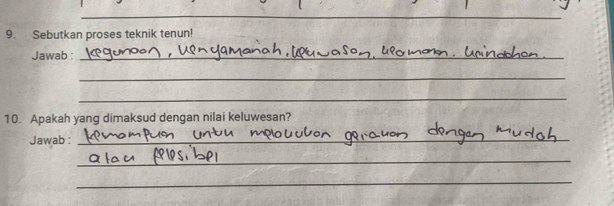 9. Sebutkan proses teknik tenun!
Jawab : kegunaan, kenyamanan, keluwasan, keamanan. keindahan.
10. Apakah yang dimaksud dengan nilai keluwesan?
Jawab : kemampuan untuk melakukan gerakan dengan mudah
atau fleksibel